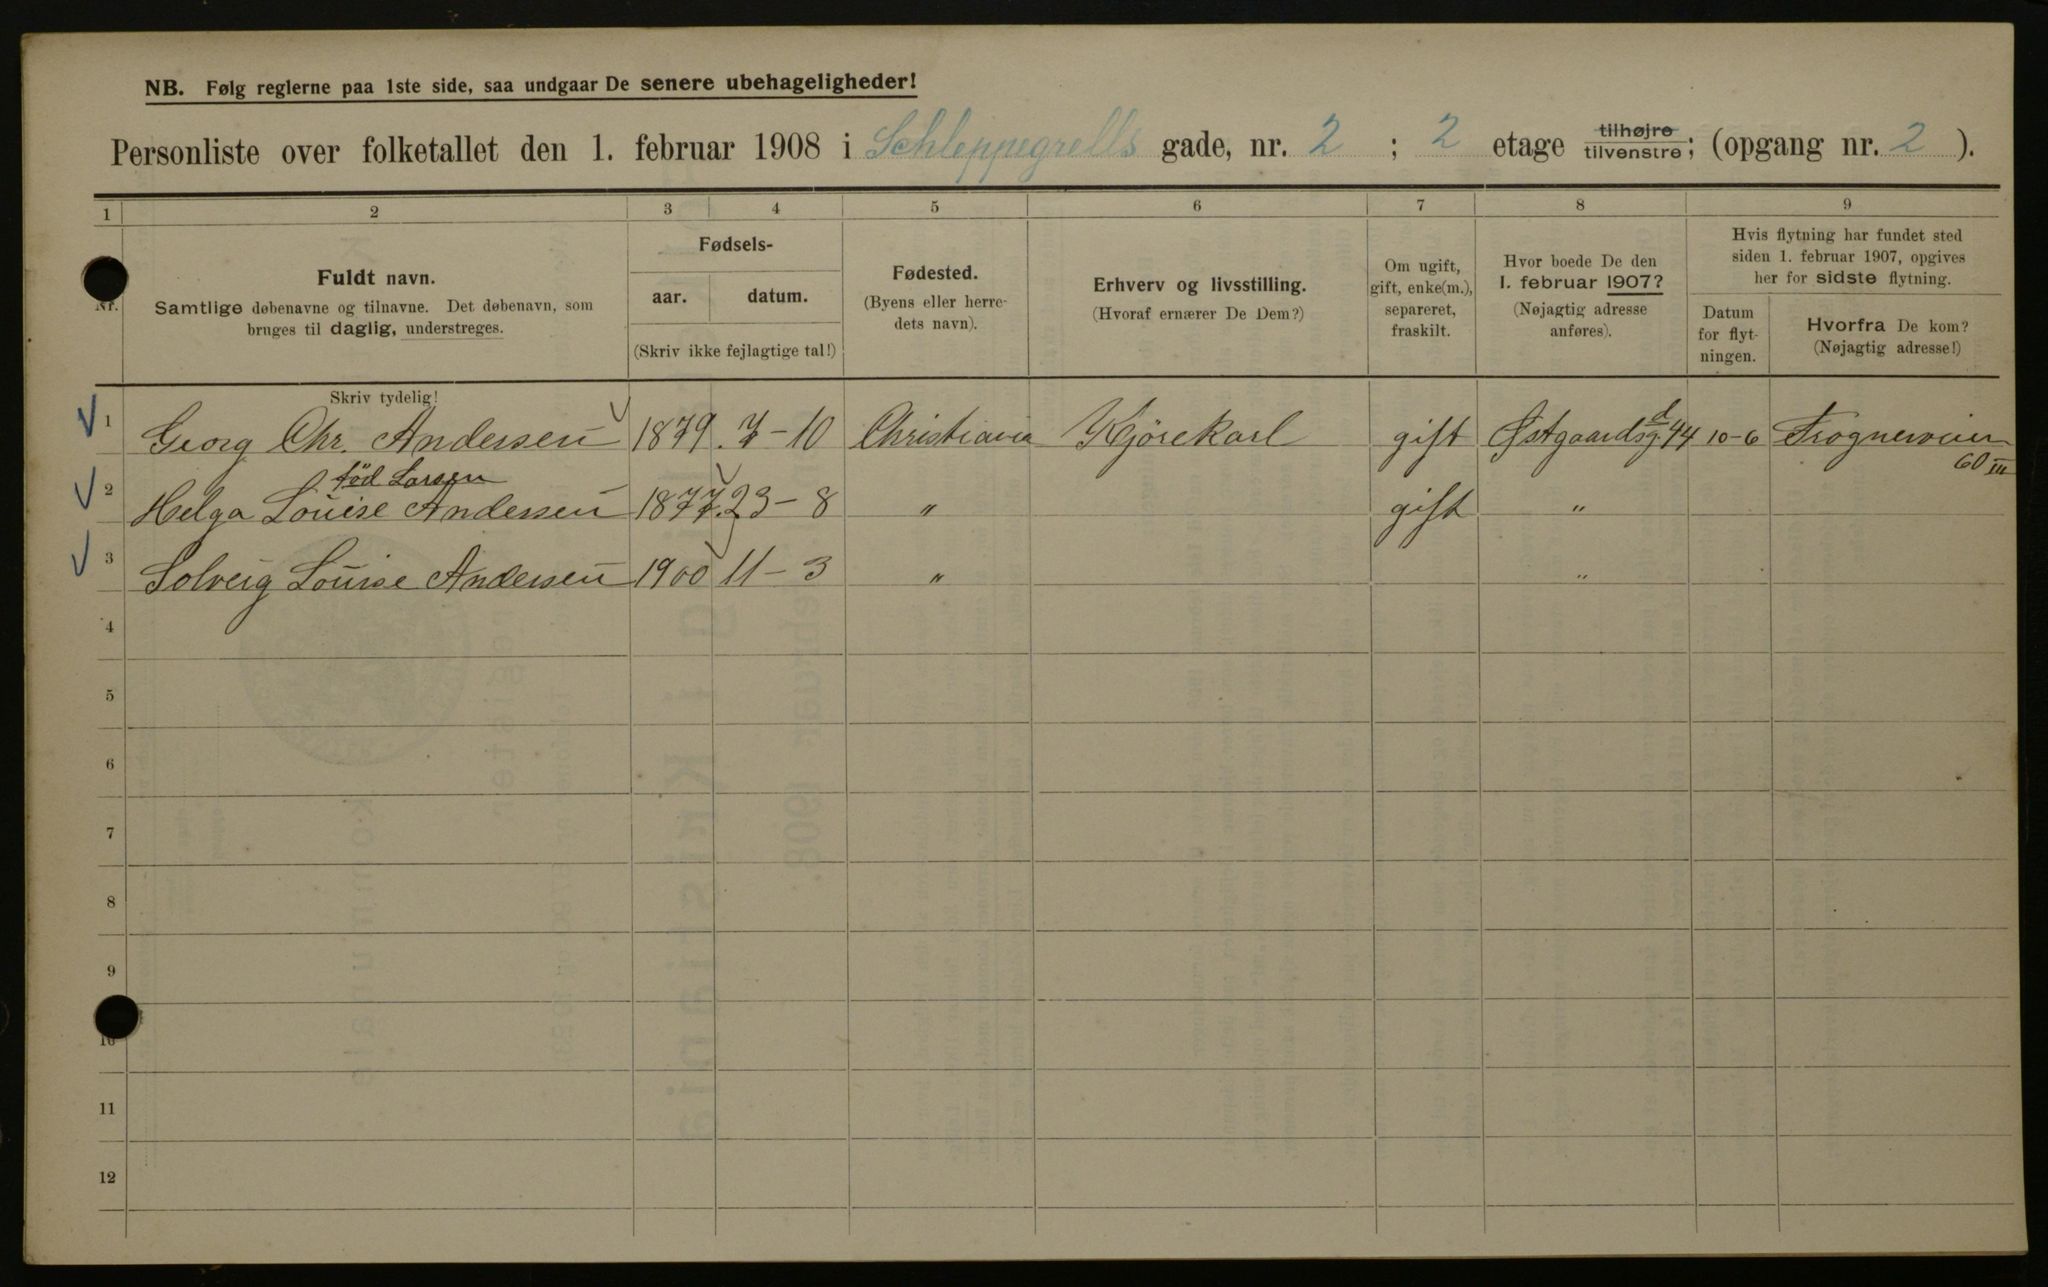 NB. Følg reglerne paa 1ste side, saa undgaar De senere ubehageligheder!
Personliste over folketallet den 1. februar 1908 i Schleppegrells gade, nr. 2 ; 2 etage tilhøjre/tilvenstre; (opgang nr. 2 ).
1 2 3 4 5 6 7 8 9
Nr.
Fuldt navn.
Samtlige døbenavne og tilnavne. Det døbenavn, som
bruges til daglig, understreges.
Fødsels-
aar. datum.
(Skriv ikke fejlagtige tal!)
Fødested.
(Byens eller herre-
dets navn).
Erhverv og livsstilling.
(Hvoraf ernærer De Dem?)
Om ugift,
gift, enke(m.),
separeret,
fraskilt.
Hvor boede De den
1. februar 1907?
(Nøjagtig adresse
anføres).
Hvis flytning har fundet sted
siden 1. februar 1907, opgives
her for sidste flytning.
Datum
for flyt-
ningen.
Hvorfra De kom?
(Nøjagtig adresse!)
Skriv tydelig!
1 Georg Chr. Andersen 1879 7-10 Christiania Kjørekarl gift Østgaardsgd. 44 10-6 Frognerveien
60 III
født Larsen
2 Helga Louise Andersen 1877 23-8 " gift "
3 Solveig Louise Andersen 1900 11-3 " "
4
5
6
7
8
9
10
11
12